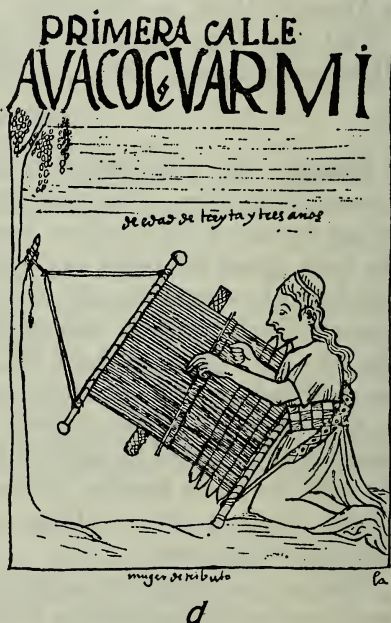 PRIMERA CALLE
AVACOC VARMI
de edad de treynta y tres años
muger de tributo
la
d